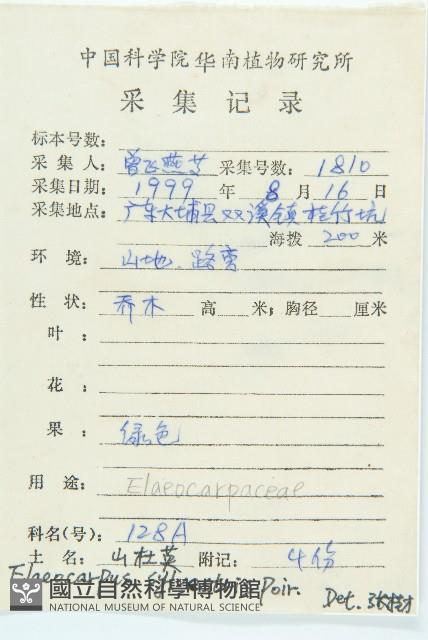 中国科学院华南植物研究所
采集记录
标本号数：
采集人：曾飞燕等 采集号数：1810
采集日期：1999 年 8 月 16 日
采集地点：广东大埔县双溪镇桂竹坑
海拨 200 米
环境：山地、路旁
性状：乔木 高 米；胸径 厘米
叶：
花：
果：绿色
用途：
Elaeocarpaceae
科名(号)：128A
土名：山杜英 附记：4份
Elaeocarpus Poir.
Det.
國立自然科學博物館
NATIONAL MUSEUM OF NATURAL SCIENCE